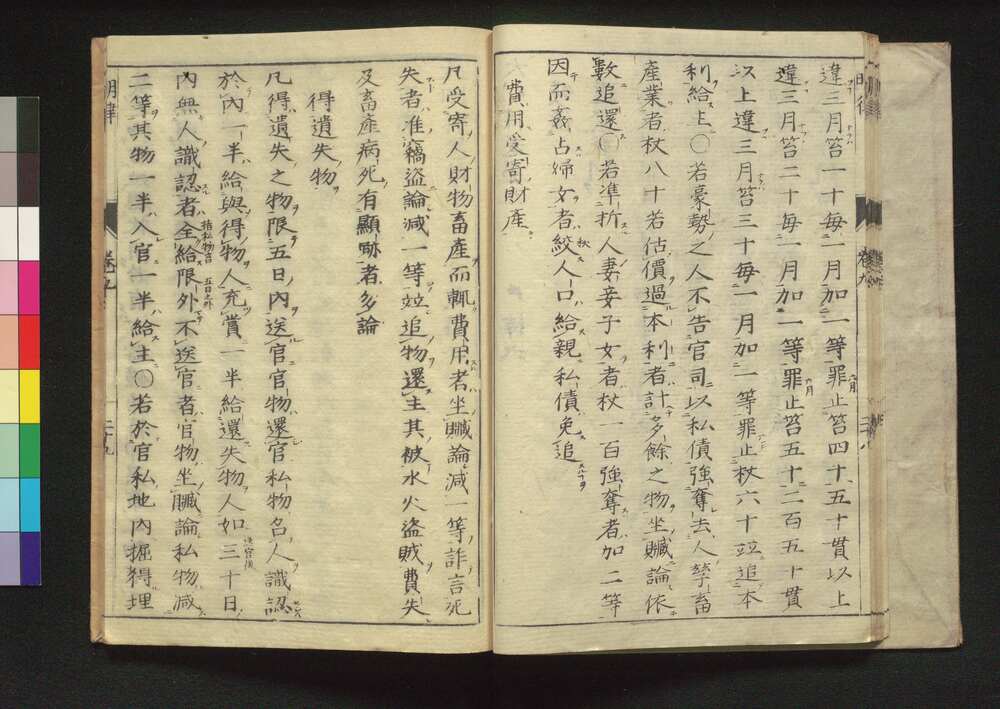 違三月笞一十每一月加一等罪止笞四十五十貫以上
違三月笞二十每一月加一等罪止笞五十二百五十貫
以上違三月笞三十每一月加一等罪止杖六十竝追本
利給主〇若豪勢之人不告官司以私債強奪去人孳畜
產業者杖八十若估價過本利者計多餘之物坐贓論依
數追還〇若準折人妻妾子女者杖一百強奪者加二等
因而姦占婦女者絞人口給親私債免追
費用受寄財產
凡受寄人財物畜產而輒費用者坐贓論減一等詐言死
失者准竊盜論減一等竝追物還主其被水火盜賊費失
及畜產病死有顯跡者勿論
得遺失物
凡得遺失之物限五日內送官官物還官私物召人識認
於內一半給與得物人充賞一半給還失物人如三十日
內無人識認者全給限外不送官者官物坐贓論私物減
二等其物一半入官一半給主〇若於官私地內掘得埋
明律
卷九
二十九